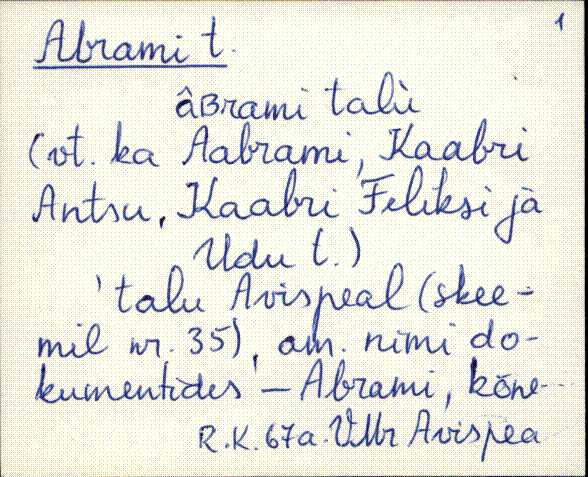 1
Abrami t.
âʙrami talù
(vt. ka Aabrami, Kaabri
Antsu, Kaabri Feliksi ja
Udu t.)
'talu Avispeal (skee-
mil nr. 35), am. nimi do-
kumentides' – Abrami, kõne-
R.K. 67a. VMr Avispea